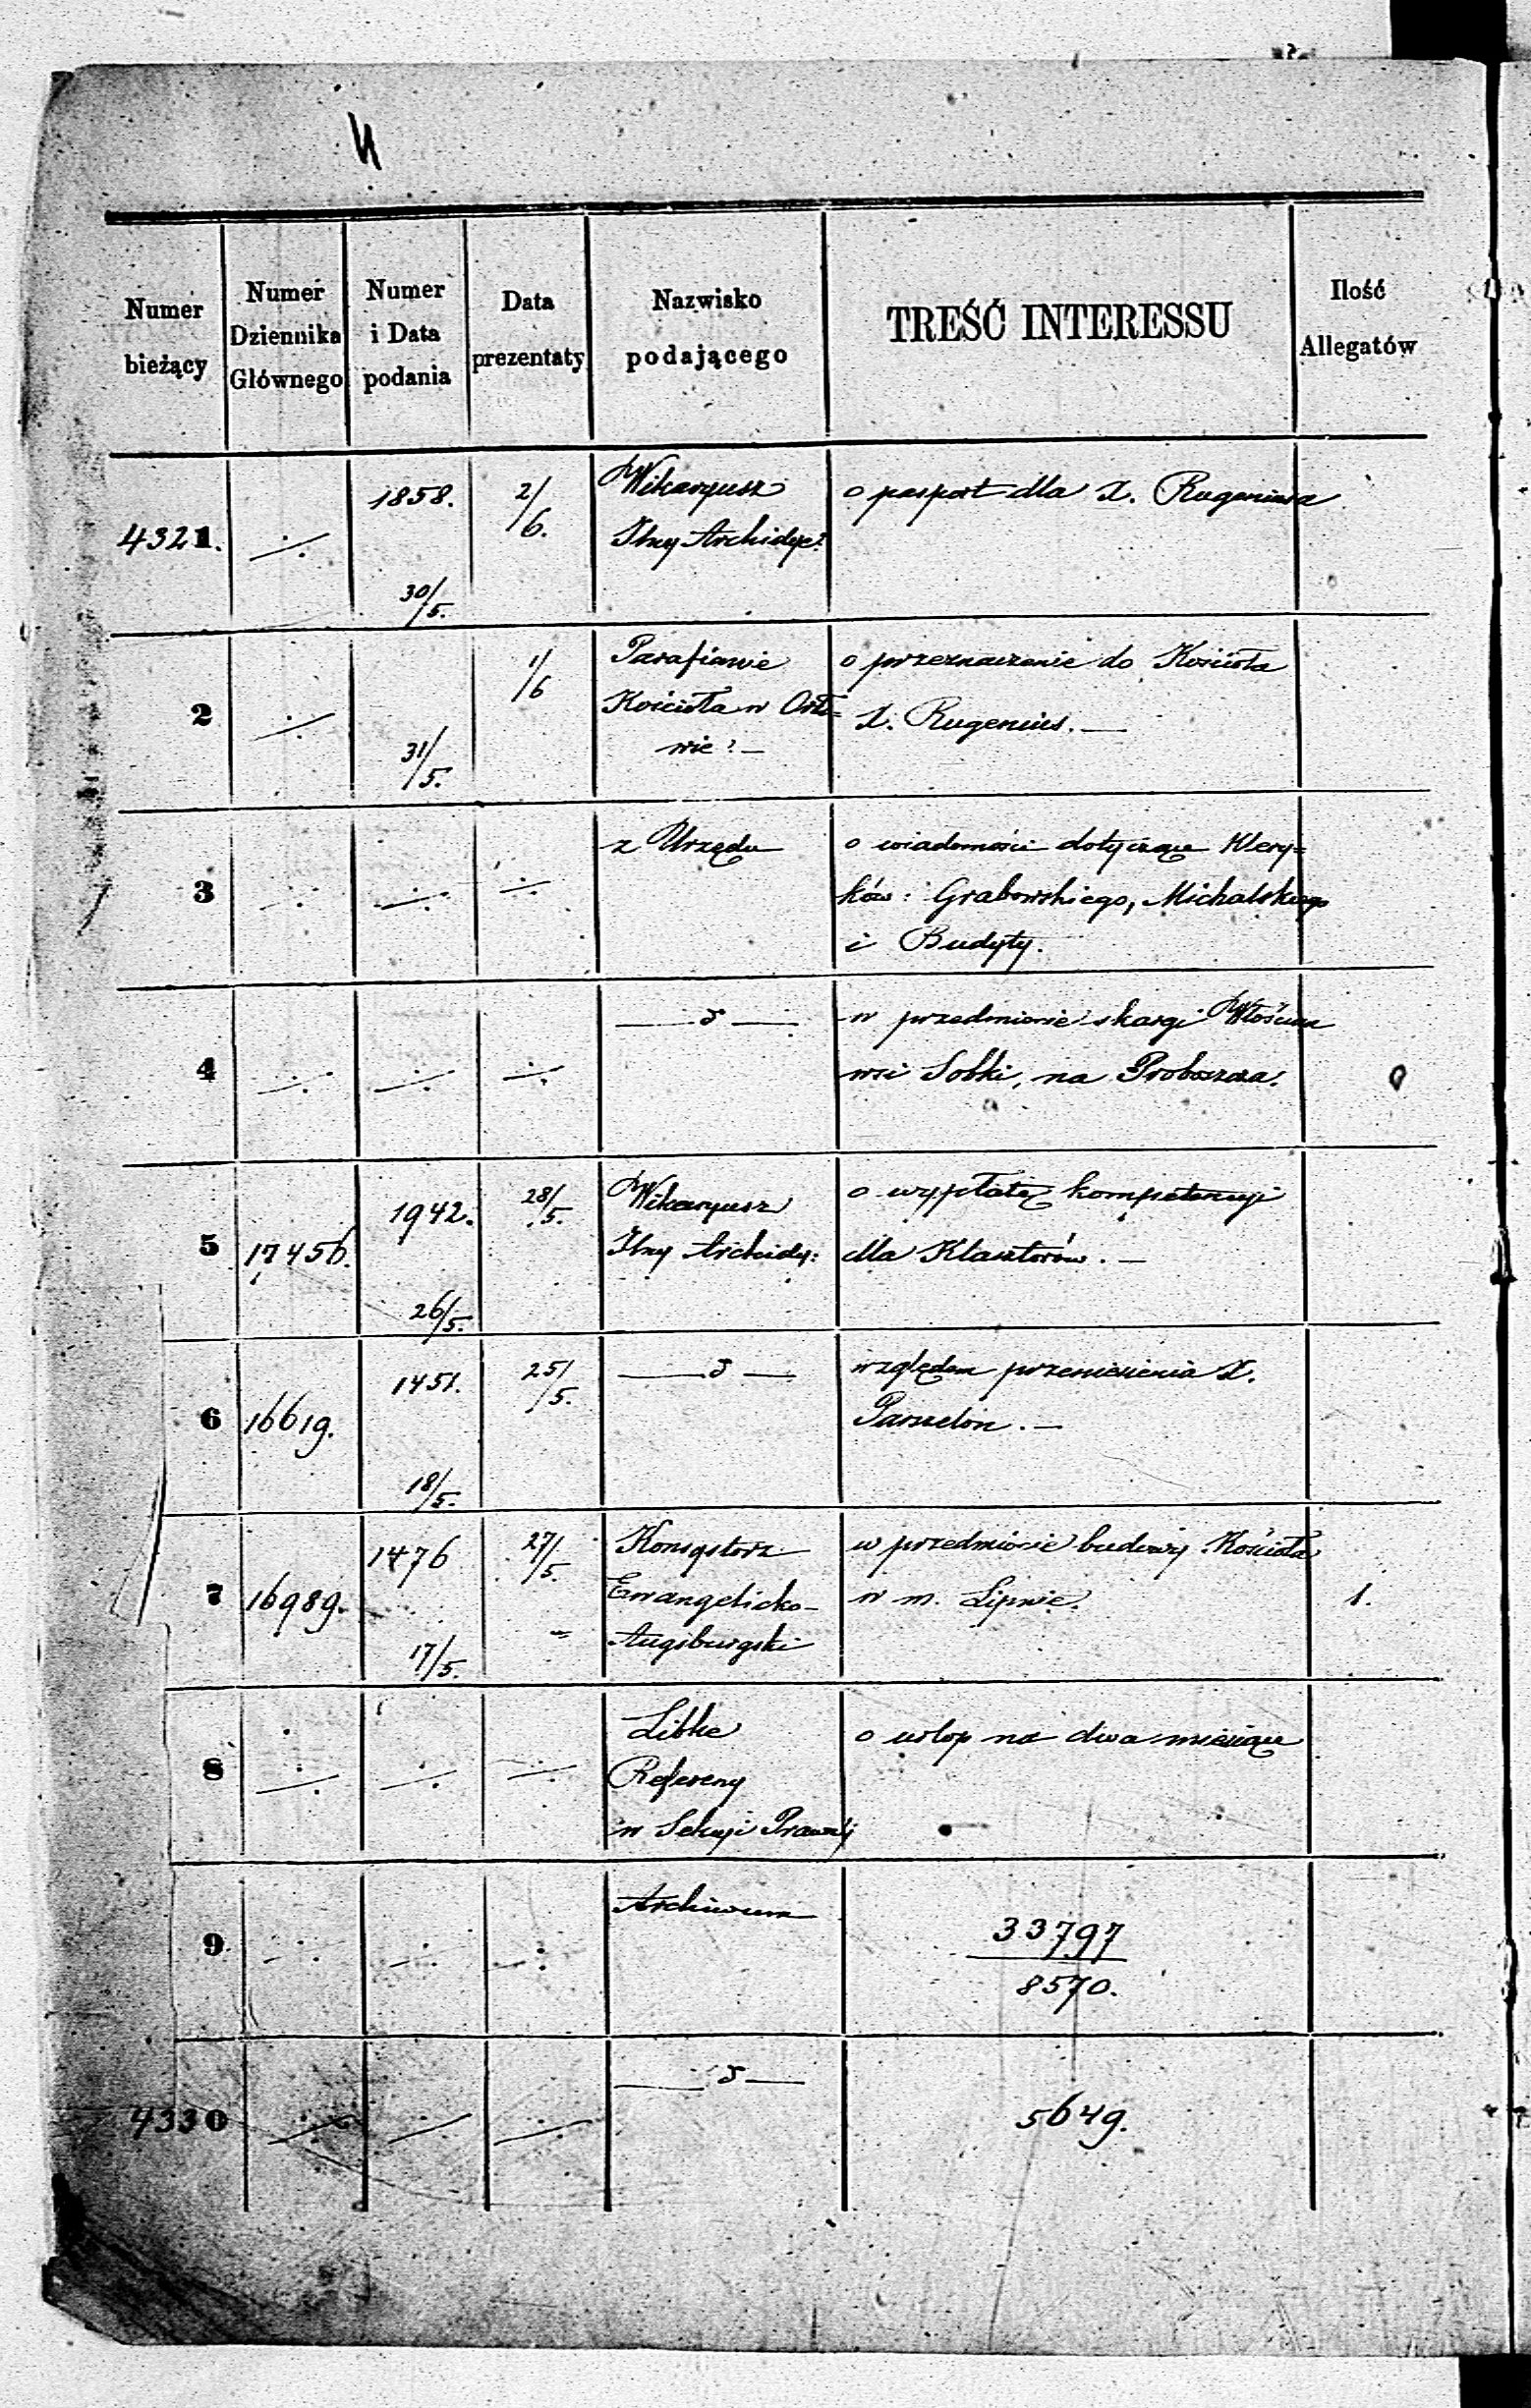 Numer bieżący
Numer Dziennika Głównego
Numer i Data podania
Data prezentaty
Nazwisko podającego
TREŚĆ INTERESSU
Ilość Allegatów
4321.
1858.
30/5.
2/6.
Wikaryusz
Archidye:
o pasport dla X. Rugeniusa
2
31/5.
1/6
Parafianie
Kościoła w
wie:
o przeznaczenie do Kościoła
X. Rugenius.
3
z Urzędu
o wiadomości dotyczące Klery=
ków: Grabowskiego, Michalskiego
i Budyty.
4
w przedmiocie skargi Włościan
wsi Sobki, na Proboszcza.
5
17456.
1942.
26/5.
28/5.
Wikaryusz
Archidy:
o wypłatę kompetencyi
dla Klasztorów.
6
16619.
1451.
18/5.
25/5.
względem przeniesienia X.
7
16989.
1476
17/5.
27/5.
Konsystorz
Ewangelicko-
Augsburgski
w przedmiocie budowy Kościoła
w m. Lipnie.
1.
8
Libke
Refereny
w Sekcyi Prawnéj
o urlop na dwa miesiące
9
Archiwum
33797
8570.
4330
5649.